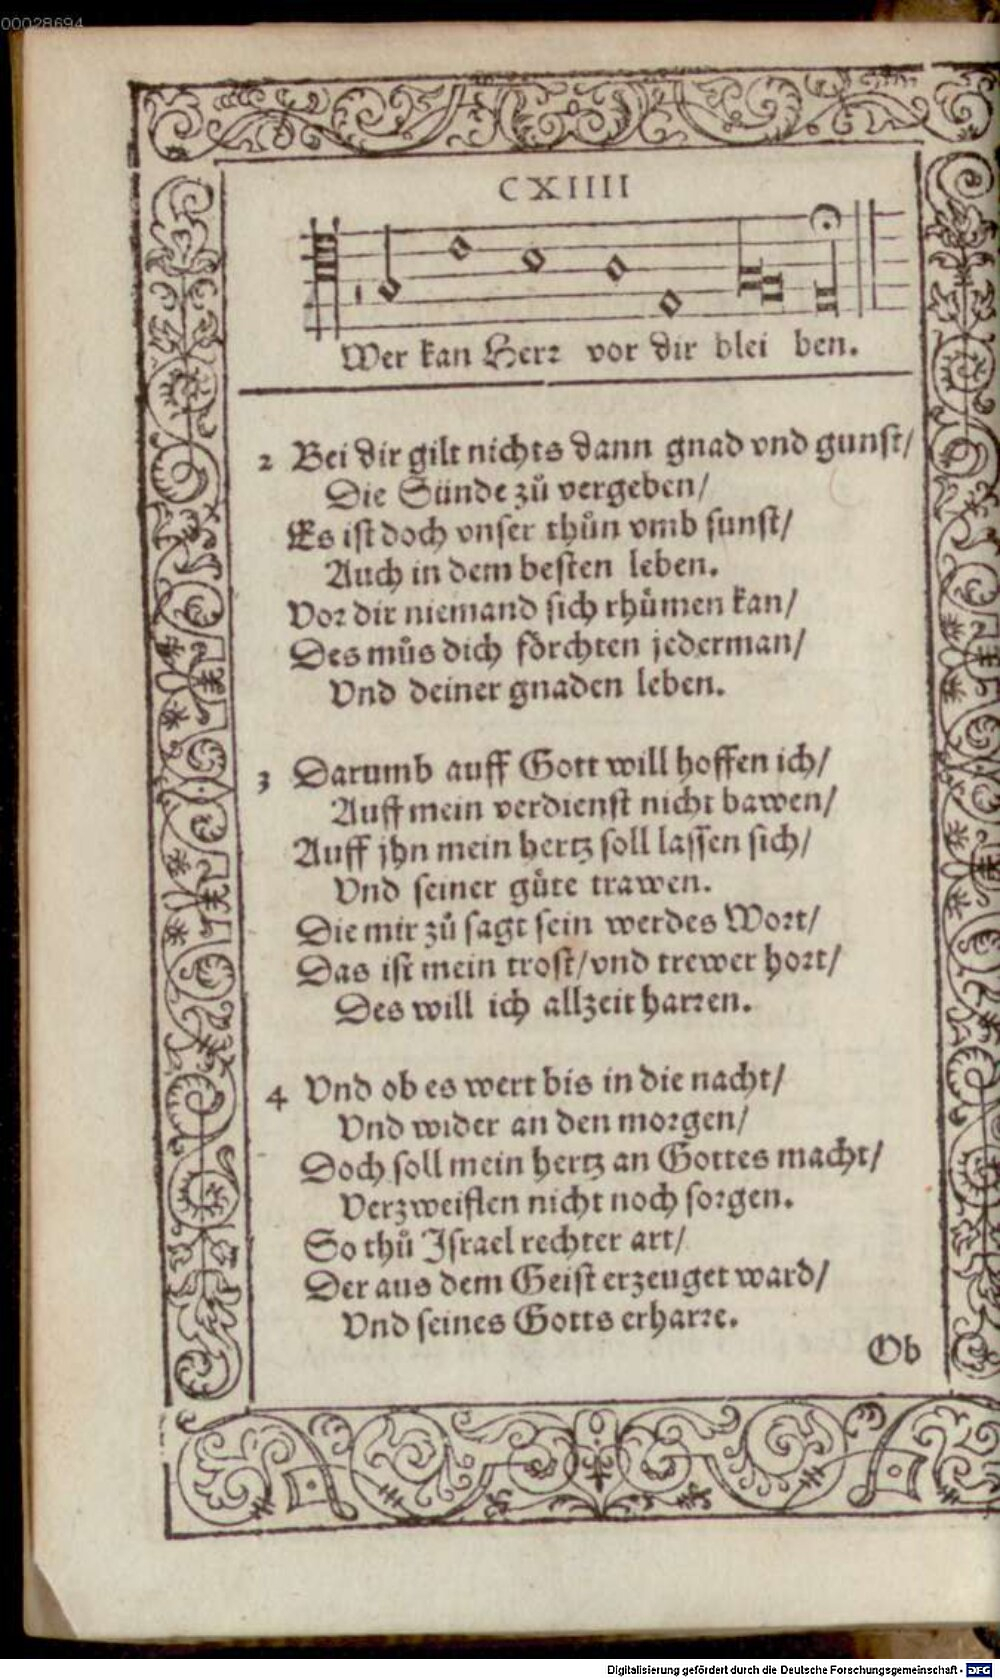 00028694
CXIIII
Wer kan Herꝛ vor dir blei ben.
2 Bei dir gilt nichts dann gnad vnd gunst/
Die Sünde zuͦ vergeben/
Es ist doch vnser thuͦn vmb sunst/
Auch in dem besten leben.
Vor dir niemand sich rhuͤmen kan/
Des muͦs dich foͤrchten jederman/
Vnd deiner gnaden leben.
3 Darumb auff Gott will hoffen ich/
Auff mein verdienst nicht bawen/
Auff jhn mein hertz soll lassen sich/
Vnd seiner guͤte trawen.
Die mir zuͦ sagt sein werdes Wort/
Das ist mein trost/vnd trewer hort/
Des will ich allzeit harꝛen.
4 Vnd ob es wert bis in die nacht/
Vnd wider an den morgen/
Doch soll mein hertz an Gottes macht/
Verzweiflen nicht noch sorgen.
So thuͦ Israel rechter art/
Der aus dem Geist erzeuget ward/
Vnd seines Gotts erharꝛe.
Ob
Digitalisierung gefördert durch die Deutsche Forschungsgemeinschaft - DFG